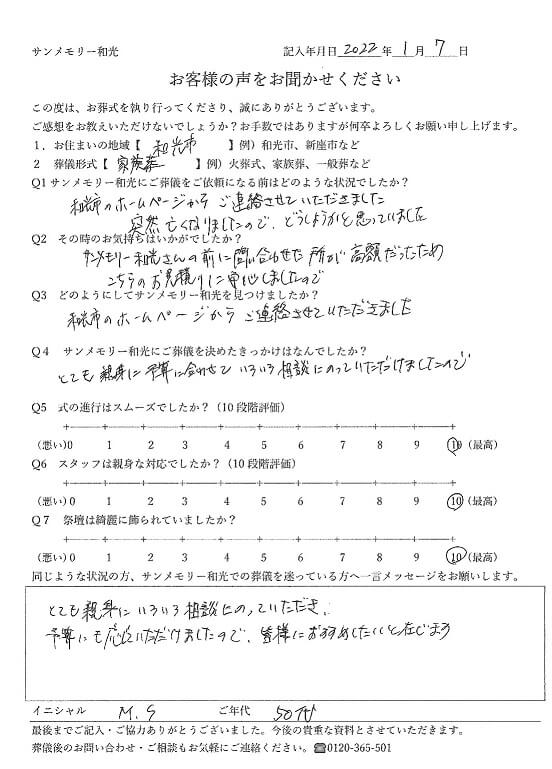 サンメモリー和光　記入年月日 2022 年 1 月 7 日
お客様の声をお聞かせください
この度は、お葬式を執り行ってくださり、誠にありがとうございます。
ご感想をお教えいただけないでしょうか？お手数ではありますが何卒よろしくお願い申し上げます。
1．お住まいの地域【 和光市 】例）和光市、新座市など
2 葬儀形式【 家族葬 】例）火葬式、家族葬、一般葬など
Q1 サンメモリー和光にご葬儀をご依頼になる前はどのような状況でしたか？
和光市のホームページから ご連絡させていただきました
突然亡くなりましたので、どうしようかと思っていました
Q2 その時のお気持ちはいかがでしたか？
サンメモリー和光さんの前に問い合わせた所が高額だったため
こちらのお見積りに安心しましたので
Q3 どのようにしてサンメモリー和光を見つけましたか？
和光市のホームページから ご連絡させていただきました
Q4 サンメモリー和光にご葬儀を決めたきっかけはなんでしたか？
とても親身に予算に合わせていろいろ相談にのっていただけましたので
Q5 式の進行はスムーズでしたか？（10 段階評価）
(悪い)0 1 2 3 4 5 6 7 8 9 10（最高）
Q6 スタッフは親身な対応でしたか？（10 段階評価）
(悪い)0 1 2 3 4 5 6 7 8 9 10（最高）
Q7 祭壇は綺麗に飾られていましたか？
(悪い)0 1 2 3 4 5 6 7 8 9 10（最高）
同じような状況の方、サンメモリー和光での葬儀を迷っている方へ一言メッセージをお願いします。
とても親身にいろいろ相談にのっていただき、
予算にも応じていただけましたので、皆様におすすめしたいと存じます
イニシャル M.S ご年代 50代
最後までご記入・ご協力ありがとうございました。今後の貴重な資料とさせていただきます。
葬儀後のお問い合わせ・ご相談もお気軽にご連絡ください。☎0120-365-501